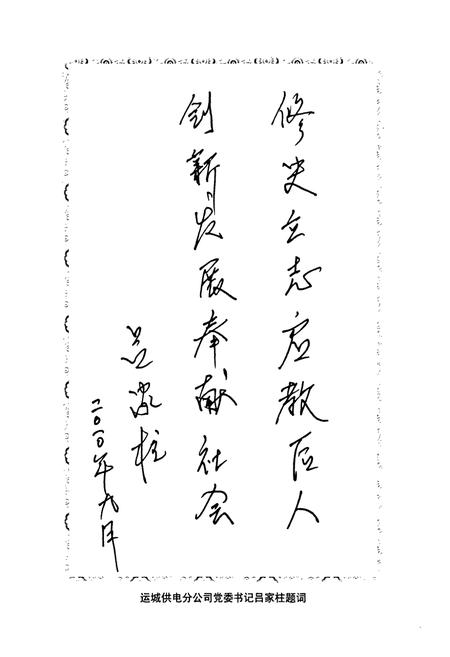 修史立志启教后人
创新发展奉献社会
吕家柱
二〇一〇年九月
运城供电分公司党委书记吕家柱题词